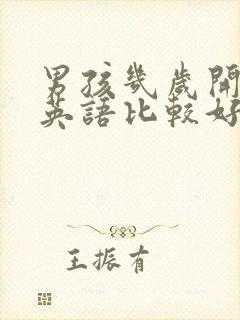 男孩幾歲開
英語比較好
王振有